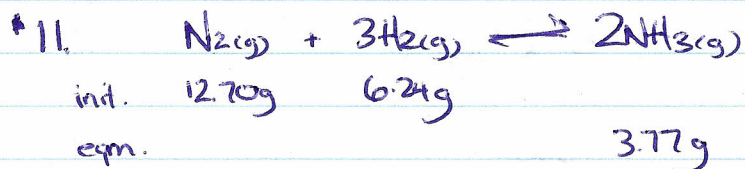 *11. N2(g) + 3H2(g) ⇌ 2NH3(g)
init. 12.70g 6.24g
eqm. 3.77g